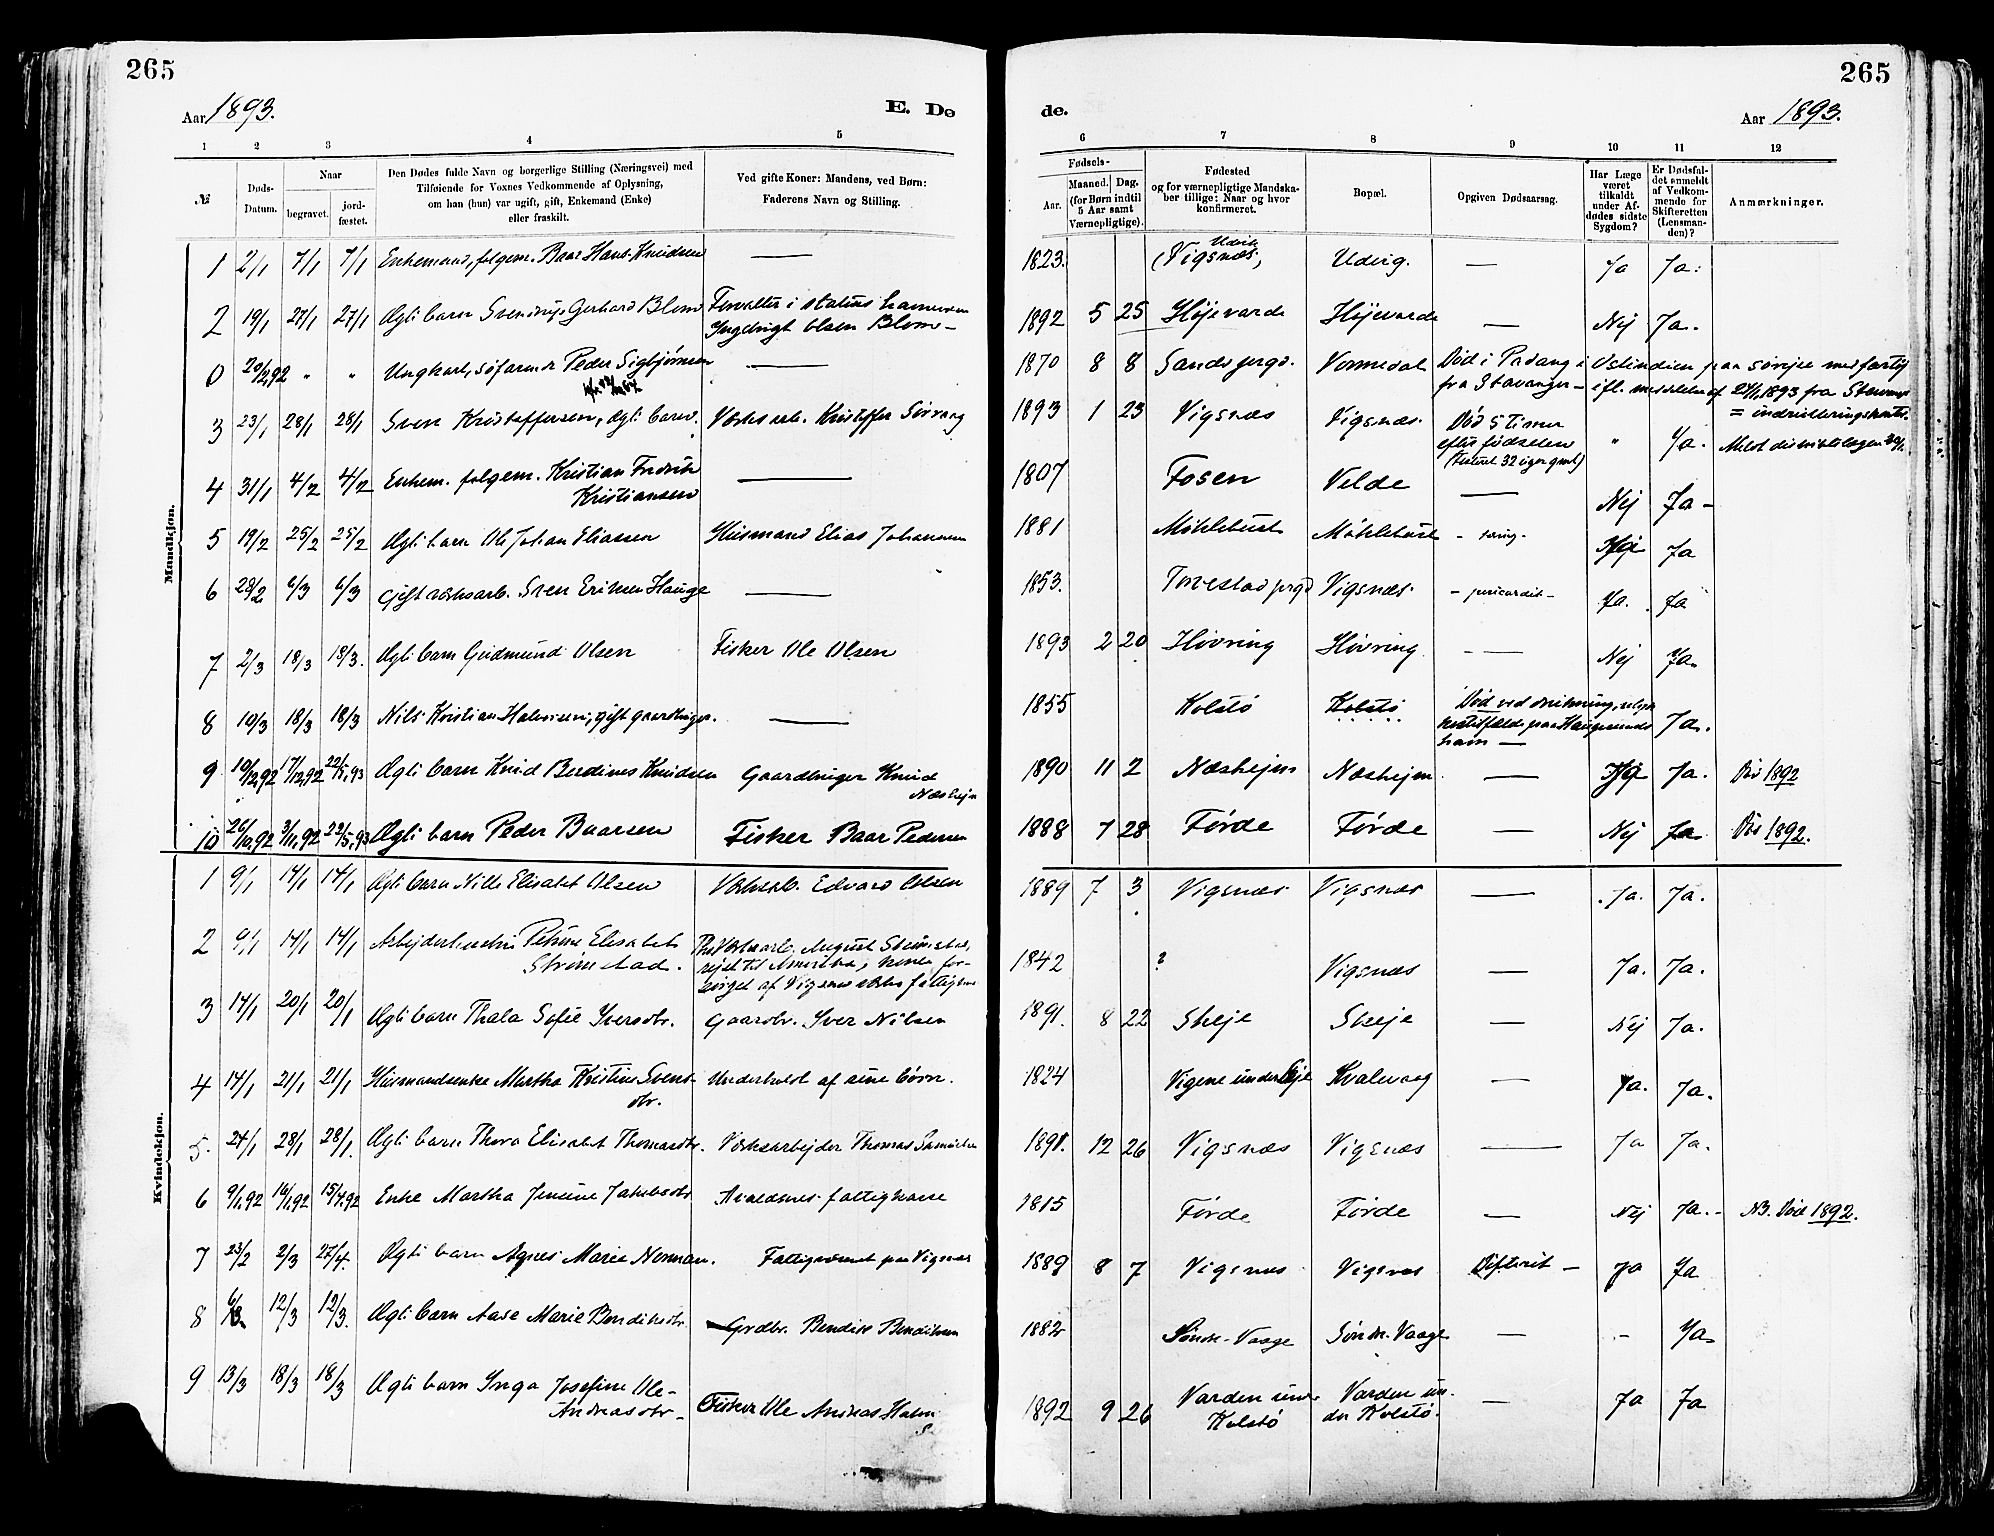 265
265
Aar 1893.
E. Dø
de.
Aar 1893.
1 2 3 4 5
6 7 8 9 10 11 12
№
Døds-
Datum.
Naar
begravet.
jord-
fæstet.
Den Dødes fulde Navn og borgerlige Stilling (Næringsvei) med
Tilføiende for Voxnes Vedkommende af Oplysning,
om han (hun) var ugift, gift, Enkemand (Enke)
eller fraskilt.
Ved gifte Koner: Mandens, ved Børn:
Faderens Navn og Stilling.
Fødsels-
Aar.
Maaned.
Dag.
(for Børn indtil
5 Aar samt
Værnepligtige).
Fødested
og for værnepligtige Mandska-
ber tillige: Naar og hvor
konfirmeret.
Bopæl.
Opgiven Dødsaarsag.
Har Læge
været
tilkaldt
under Af-
dødes sidste
Sygdom?
Er Dødsfal-
det anmeldt
af Vedkom-
mende for
Skifteretten
(Lensman-
den)?
Anmærkninger.
Mandkjøn.
1 2/1 7/1 7/1 Enkemand, folgem. Baar Hans Knudsen — 1823. (Vigsnæs, Udvik Udvig. — Ja Ja.
2 19/1 27/1 27/1 Ægti barn Svendrup Gerhard Blom
Forvalter i statens havnevæsen
Ingebrigt Olsen Blom — 1892 5 25 Høievarde Høievarde — Nej Ja.
0 20/12,92 " " Ungkarl, søfarende Peder Sigbjørnsen — 1870 8 8 Sands prgd. Vormedal Død i Padang i Ostindien paa sørejse med fartøj
fra Stavanger — ifl. meddelelse af 21/1 1893 fra Stavanger
= indrulleringskontor
3 23/1 28/1 28/1 Sven Kristoffersen, ægti. barn. Værksarb. Kristoffer Sørvaag 1893 1 23 Vigsnæs Vigsnæs. Død 5 timer
efter fødselen
(Fosteret 32 uger gml.) " Ja. Meldt distriktslægen
4 31/1 4/2 4/2 Enkem. folgem. Kristian Fredrik
Kristiansen — 1807 Fosen Velde — Nej Ja —
5 19/2 25/2 25/2 Ægti barn Ole Johan Eliassen Husmand Elias Johannesen 1881 Møklebust Møklebust - tæring - Ja
6 28/2 6/3 6/3 Gift værksarb. Sven Eriksen Hauge — 1853. Torvestad prgd Vigsnæs. - pericardit - Ja. Ja
7 2/3 18/3 18/3. Ægti barn Gudmund Olsen Fisker Ole Olsen 1893 2 20 Høvring Høvring — Nej Ja.
8 10/3 18/3 18/3 Nils Kristian Halvorsen, gift gaardbruger. — 1855 Kolstø Kolstø Død ved drukning,
paa Haugesunds
havn — Ja.
9 10/12,92 17/12,92 22/5,93 Ægti barn Knud Berdines Knudsen Gaardbruger Knud
Næshejm 1890 11 2 Næshejm Næshejm. — Ja. Død 1892
10 26/10,92 3/11,92 22/5,93 Ægti barn Peder Baarsen Fisker Baar Pedersen 1888 7 28 Førde Førde — Nej Ja Død 1892.
Kvindekjøn.
1 9/1 14/1 14/1 Ægti barn Hilda Elisabet Olsen Værksarb. Edvard Olsen 1889 7 3 Vigsnæs Vigsnæs — Ja. Ja.
2 9/1 14/1 14/1 Arbejderhustru Petrine Elisabet
Strømstad. Værksarb. August Strømstad,
rejst til Amerika, konen for-
sørget af Vigsnæs værks fattigkasse 1842 ? Vigsnæs — Ja. Ja.
3 14/1 20/1 20/1 Ægti barn Thala Sofie Iversdtr. Gaardbr. Iver Nilsen 1891. 8 22 Skeje Skeje — Nej Ja.
4 14/1 21/1 21/1 Husmandsenke Martha Kristine Svens-
dtr. Underholdt af sine børn. 1824 Vigene under Eje Kvalevaag — Ja. Ja.
5 24/1 28/1 28/1. Ægti barn Thora Elisabet Thomasdtr. Værksarbejder Thomas Samuelsen 1891. 12 26 Vigsnæs Vigsnæs — Ja Ja.
6 9/1,92 16/1,92 15/4,92 Enke Martha Jensine Jakobsdtr Avaldsnes fattigkasse 1815 Førde Førde — Nej Ja. NB. Død 1892.
7 23/2 2/3 27/4. Ægti barn Agnes Marie Norman. Fattigvæsenet paa Vigsnæs 1889 8 7 Vigsnæs Vigsnæs Difterit — Ja Ja
8 6/3 12/3 12/3. Ægti barn Aase Marie Bendiksdtr. Grdbr. Bendik Bendiksen 1882 Søndr. Vaage Søndr. Vaage — - Ja
9 13/3 18/3 18/3 Ægti barn Inga Josefine Ole-
Andreasdtr — Fisker Ole Andreas Halvors. 1892 9 26 Varden under
Kolstø Varden un-
der Kolstø. — Ja Ja